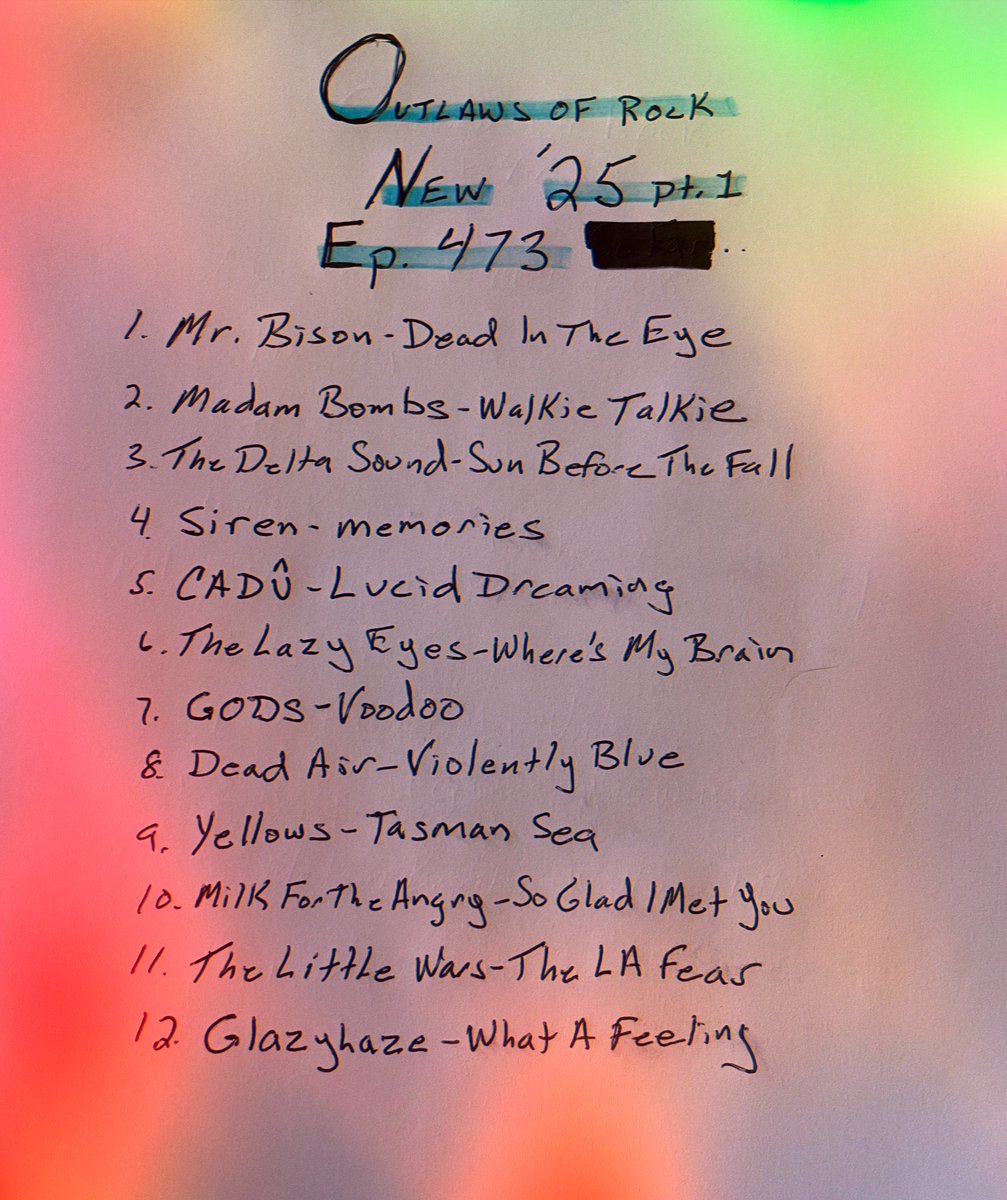 Outlaws of Rock
New '25 pt. 1
Ep. 473 ..
1. Mr. Bison - Dead In The Eye
2. Madam Bombs - Walkie Talkie
3. The Delta Sound - Sun Before The Fall
4. Siren - memories
5. CADÛ - Lucid Dreaming
6. The Lazy Eyes - Where's My Brain
7. GODS - Voodoo
8. Dead Air - Violently Blue
9. Yellows - Tasman Sea
10. Milk For The Angry - So Glad I Met You
11. The Little Wars - The LA Fear
12. Glazyhaze - What A Feeling